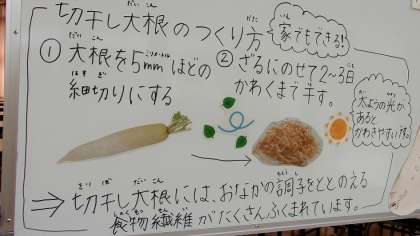 切干し大根のつくり方
家でもできる!!
① 大根を5mmほどの
細切りにする
② ざるにのせて2~3日
かわくまで干す。
太ようの光が
あると
かわきやすいよ。
⇒ 切干し大根には、おなかの調子をととのえる
食物繊維がたくさんふくまれています。